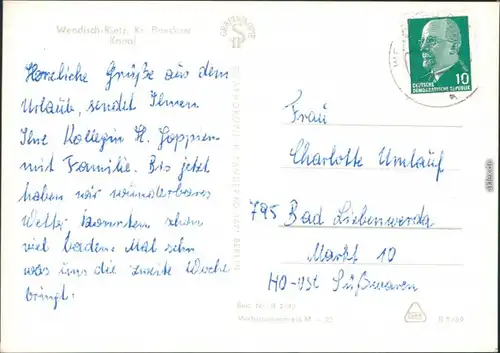 Wendisch-Rietz, Kr. Beeskow
Kanal
Herzliche Grüße aus dem
Urlaub, sendet Ihnen
Ihre Kollegin H. Joppen
mit Familie. Bis jetzt
haben wir wunderbares
Wetter konnten schon
viel baden. Mal sehn
was uns die zweite Woche
bringt.
10
DEUTSCHE
DEMOKRATISCHE REPUBLIK
Frau
Charlotte Umlauf
795 Bad Liebenwerda
Markt 10
HO-Vst Süßwaren